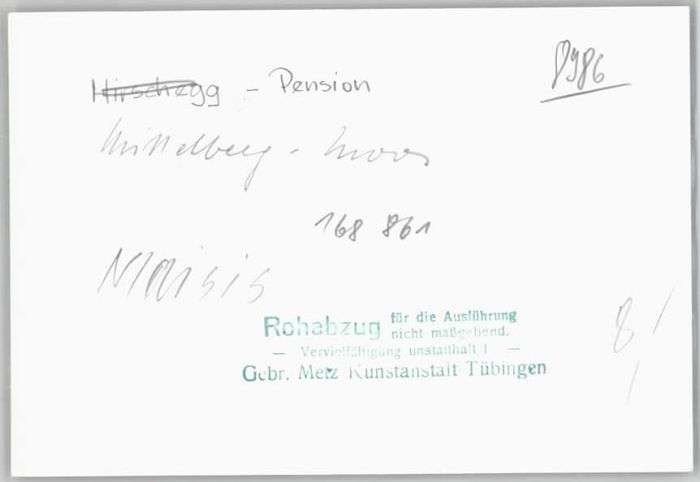 Hirschegg - Pension
8986
Mittelberg - Moos
168 861
Rohabzug für die Ausführung
nicht maßgebend.
— Vervielfältigung unstatthaft! —
Gebr. Metz Kunstanstalt Tübingen
8/